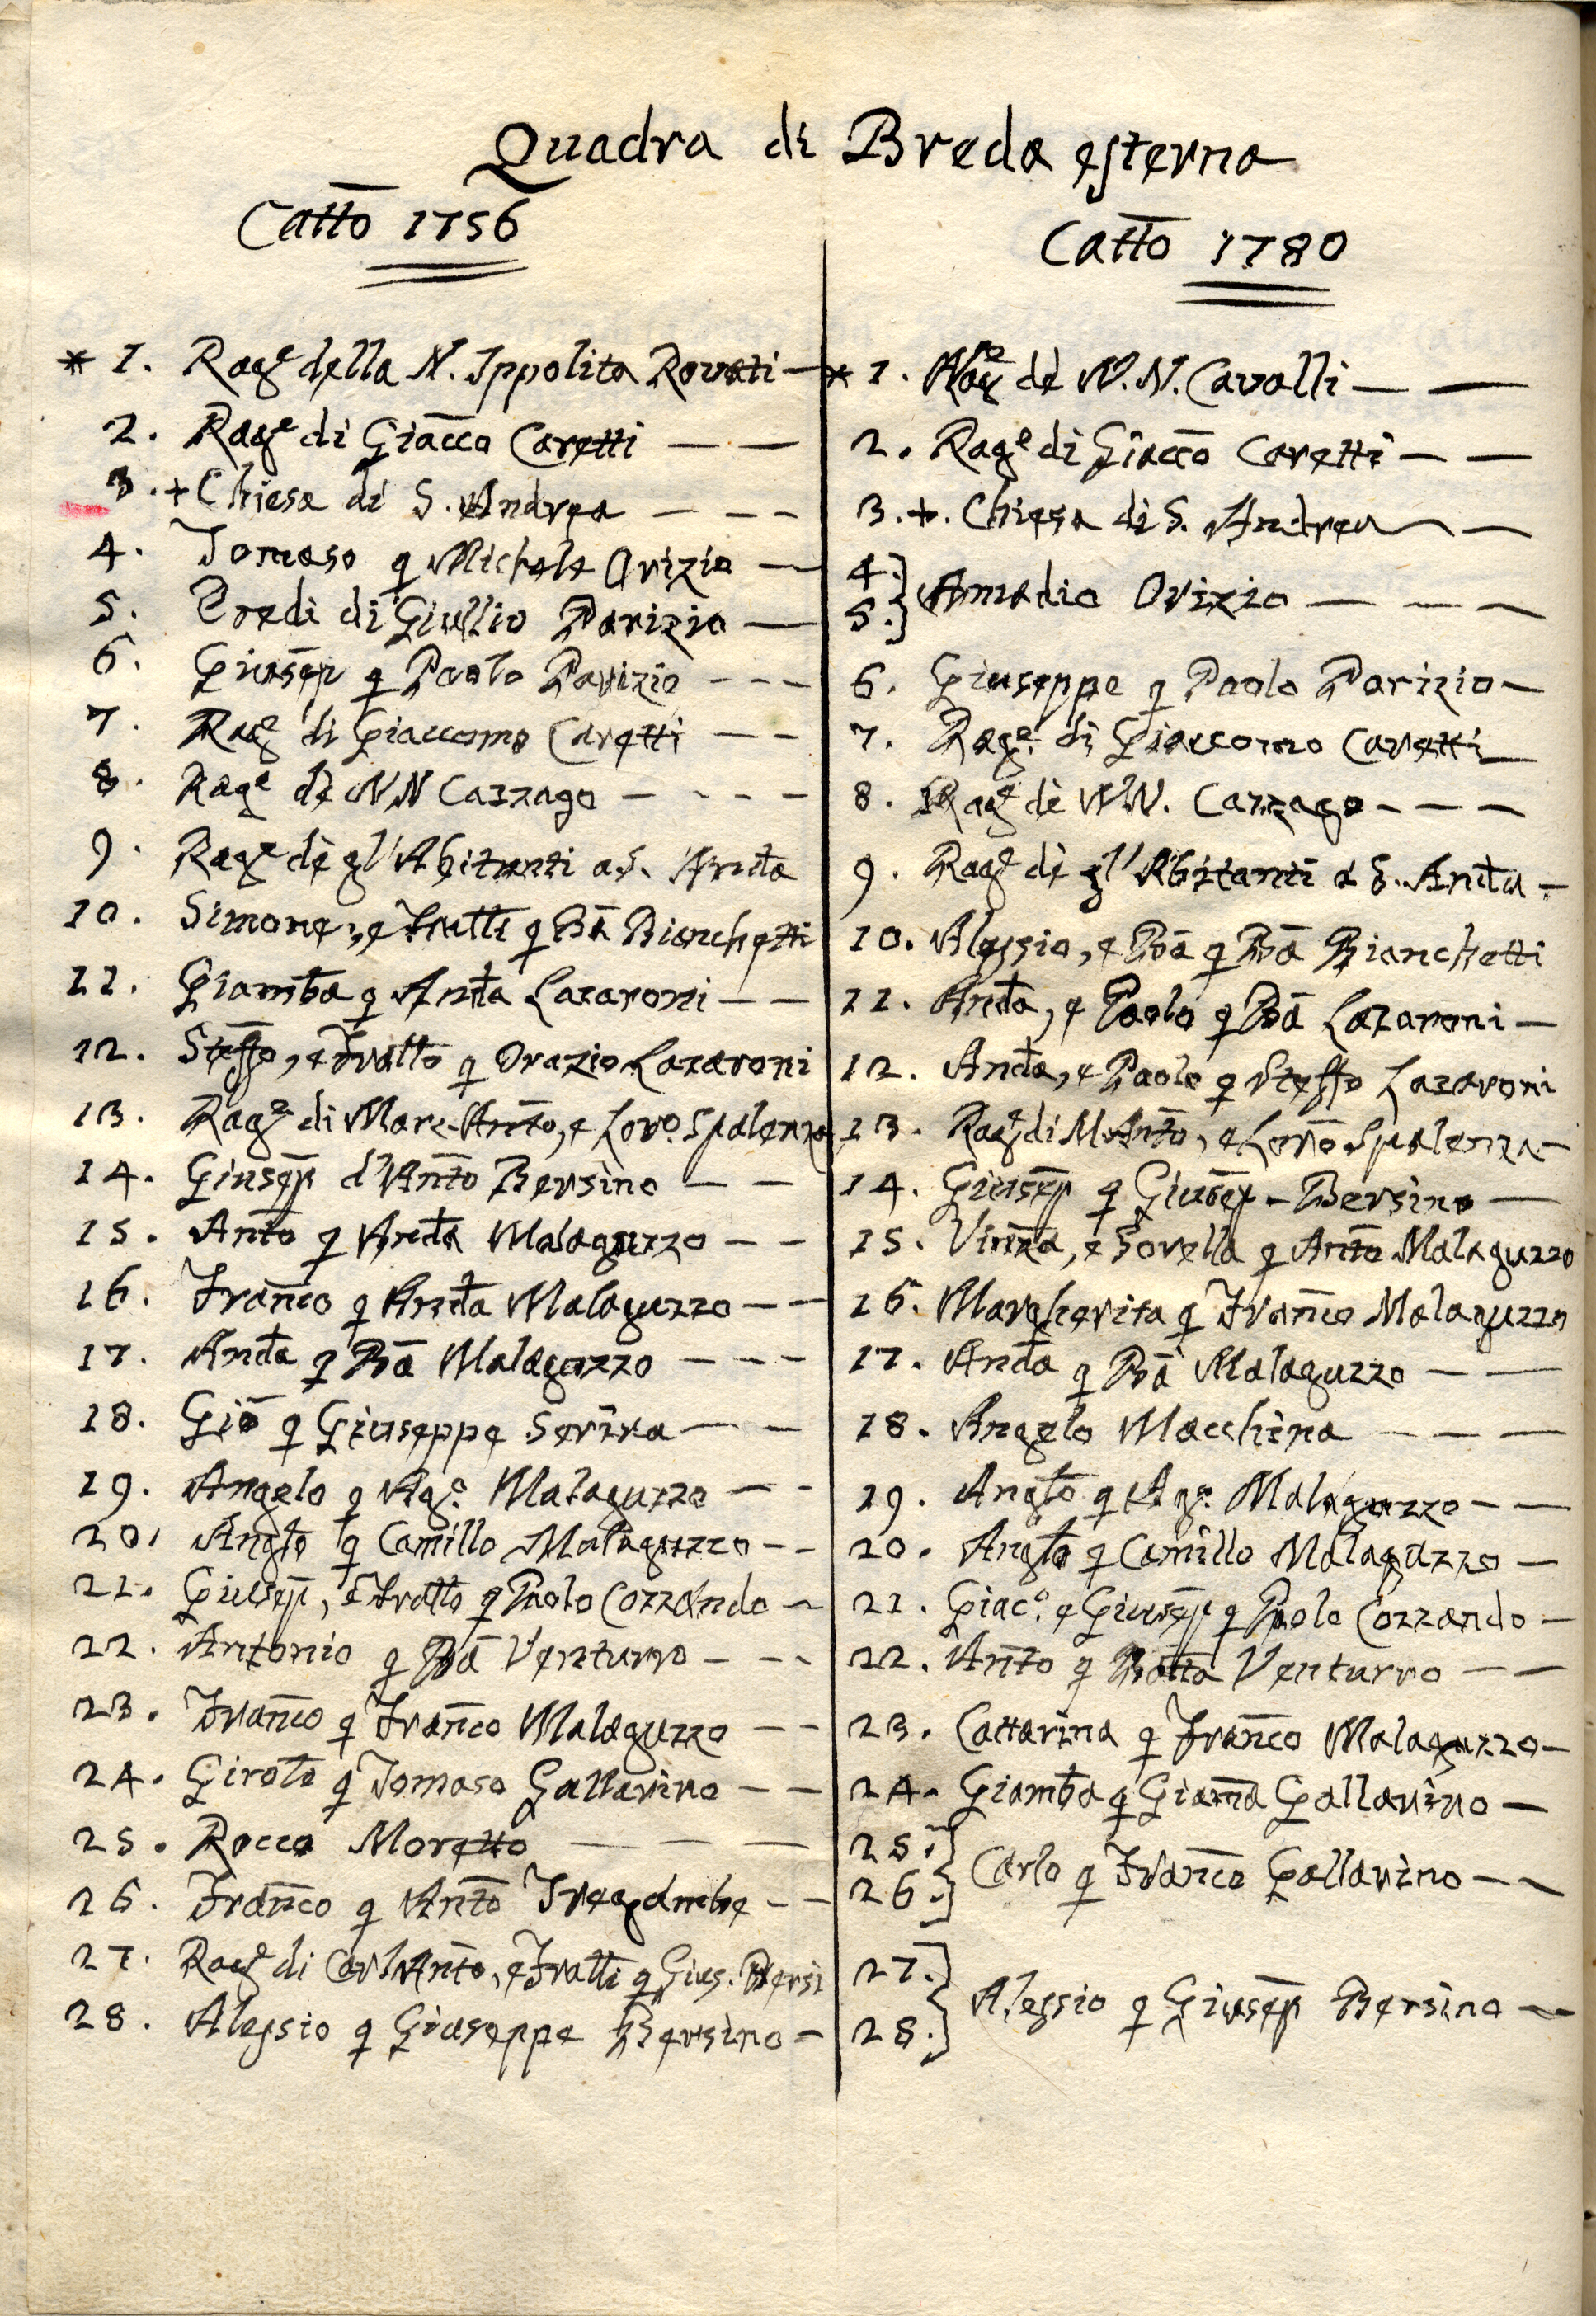 Quadra di Breda esterna
Cattō 1756
* 1. Rag.e della N. Ippolita Rovati —
2. Rag.e di Giācco Caretti — —
3. + Chiesa di S. Andrea — — —
4. Tomaso q Michele Orizio —
5. Eredi di Giullio Parizio —
6. Giusēp q Paolo Parizio — — —
7. Rag.e di Giaccomo Caretti — —
8. Rag.e dè NN Cazzago — — — —
9. Rag.e dè gl'Abitanti a S. Andā
10. Simone, e Frattī q Bā Bianchetti
11. Giambā q Andā Lazaroni — —
12. Steffō, e Frattō q Orazio Lazaroni
13. Rag.e di Marc-Antō, e Lor.o Spalenza
14. Giusēp d'Antō Bersino — —
15. Antō q Andā Malaguzzo — —
16. Franc̄o q Andā Malaguzzo — —
17. Andā q Bā Malaguzzo — — —
18. Giō q Giuseppe Serina — —
19. Angelo q Ag.o Malaguzzo — —
20. Anglō q Camillo Malaguzzo — —
21. Giusēp, e Frattō q Paolo Cozzando —
22. Antonio q Bā Venturro — — —
23. Franc̄o q Franc̄o Malaguzzo — —
24. Girolō q Tomaso Gallarino — —
25. Rocco Moretto — — —
26. Franc̄o q Antō Tregambe — —
27. Rag.e di Carl'Antō, e Frattī q Gius. Bersi
28. Alessio q Giuseppe Bersino —
Cattō 1780
* 1. Rag.e dè N. N. Cavalli — —
2. Rag.e di Giaccō Caretti — —
3. +. Chiesa di S. Andrea — —
4.] 5.] Amadio Orizio — — —
6. Giuseppe q Paolo Parizio —
7. Rag.e di Giaccomo Caretti —
8. Rag.e dè NN. Cazzago — — —
9. Rag.e dè gl'Abitanti a S. Andā —
10. Alessio, e Bā q Bā Bianchetti
11. Andā, e Paolo q Bā Lazaroni —
12. Andā, e Paolo q Steffō Lazaroni
13. Rag.e di M. Antō, e Lorēō Spalenza —
14. Giusēp q Giusēp - Bersino —
15. Vinzā, e Sorella q Antō Malaguzzo
16. Margherita q Franc̄o Malaguzzo
17. Andā q Bā Malaguzzo — —
18. Angelo Macchina — — —
19. Anglō q Ag.o Malaguzzo — —
20. Anglō q Camillo Malaguzzo —
21. Giac.o e Giusēp q Paolo Cozzando —
22. Antō q Battā Venturro — —
23. Cattarina q Franc̄o Malaguzzo —
24. Giambā q Giam̄a Gallarino —
25.] 26.] Carlo q Franc̄o Gallarino — —
27.] 28.] Alessio q Giusēp Bersino —